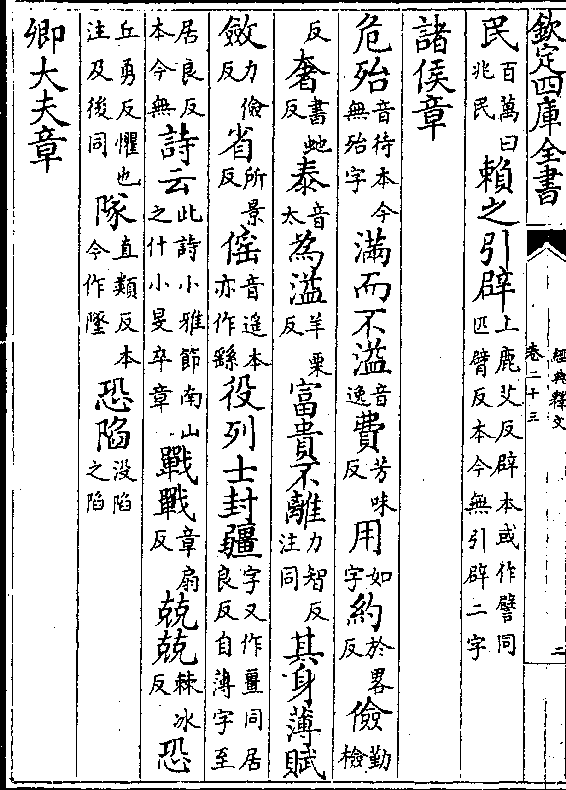 欽定四庫全書
經典釋文
卷二十三
二
民百萬曰兆民賴之引辟上鹿艾反辟本或作譬同匹臂反本今無引辟二字
諸侯章
危殆音待本今無殆字滿而不溢音逸費芳味反用如字約於畧反儉勤檢
反奢書虵反泰音太為溢羊栗反富貴不離力智反注同其身薄賦
斂力儉反省所景反傜音遥本亦作繇役列士封疆字又作畺同居良反自薄字至
居良反本今無詩云此詩小雅節南山之什小旻卒章戰戰章扇反兢兢棘冰反恐
丘勇反懼也注及後同隊直類反本今作墜恐陷没陷之陷
卿大夫章